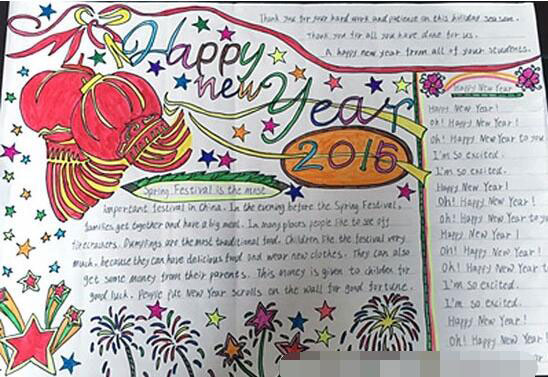 Thank you for your hard work and patience on this holiday season.
Thank you for all you have done for us.
A happy new year from all of your students.
Happy
new
Year
2015
Spring Festival is the most
important festival in China. In the evening before the Spring Festival,
families get together and have a big meal. In many places people like to set off
firecrackers. Dumplings are the most traditional food. Children like the festival very
much, because they can have delicious food and wear new clothes. They can also
get some money from their parents. This money is given to children for
good luck. People put New Year scrolls on the wall for good fortune.
Happy New Year
Happy New Year!
Oh! Happy New Year!
Oh! Happy New Year to you
I'm so excited.
I'm so excited.
Happy New Year!
Oh! Happy New Year!
Oh! Happy New Year to yo
Happy New Year!
Oh! Happy New Year!
Oh! Happy New Year t
I'm so excited.
I'm so excited.
Happy New Year!
Oh! Happy New Year!